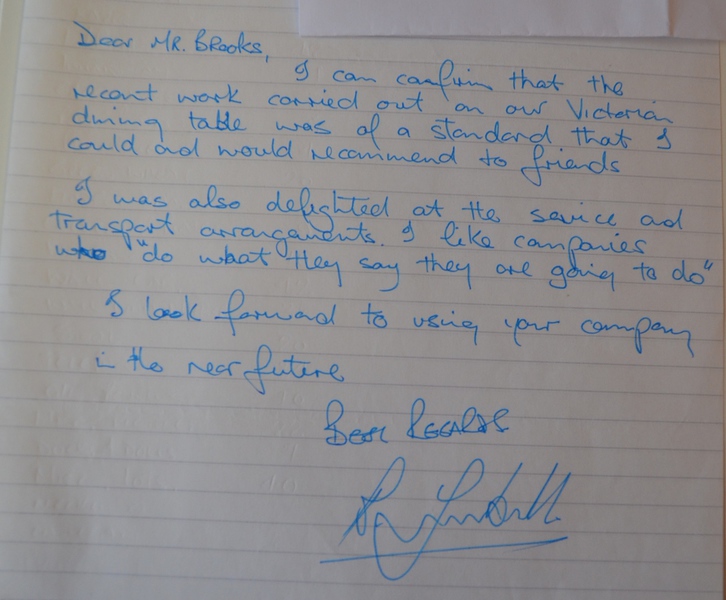 Dear MR. BRooks,
I can confirm that the
recent work carried out on our Victorian
dining table was of a standard that I
could and would recommend to friends
I was also delighted at the service and
transport arrangements. I like companies
who "do what they say they are going to do"
I look forward to using your company
in the near future
Best REGARDS